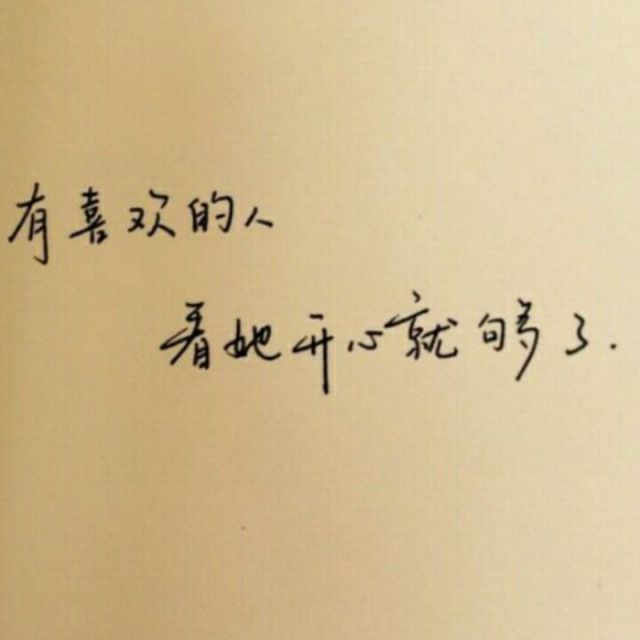 有喜欢的人
看她开心就够了.